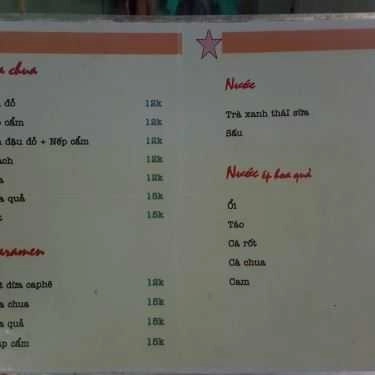 chua
đỏ 12k
cẩm 12k
đậu đỏ + Nếp cẩm 12k
12k
12k
quả 15k
15k
dừa caphê 12k
chua 15k
quả 15k
cẩm 15k
Nước
Trà xanh thái sữa
Sấu
Nước ép hoa quả
Ổi
Táo
Cà rốt
Cà chua
Cam